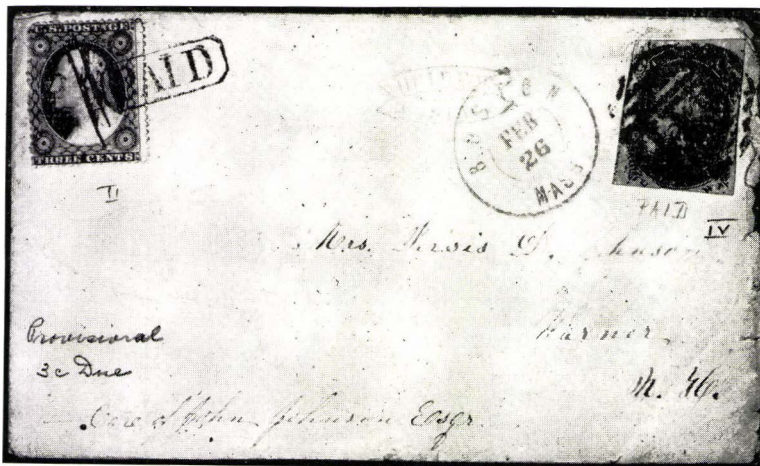 U.S. POSTAGE
THREE CENTS
PAID
BOSTON
FEB
26
MASS
II
PAID
IV
Mrs. D. Johnson
Warner
N. H.
Provisional
3c Due
Care of John Johnson Esqr.